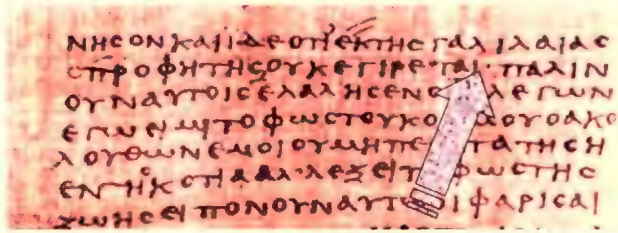 ΝΗϹΟΝΚΑΙΙΔΕΟΤΙΕΚΤΗϹΓΑΛΙΛΑΙΑϹ
ΟΠΡΟΦΗΤΗϹΟΥΚΕΓΙΡΕΤΑΙ·ΠΑΛΙΝ
ΟΥΝΑΥΤΟΙϹΕΛΑΛΗϹΕΝΟ ΛΕΓΩΝ
ΕΓΩΕΙΜΙΤΟΦΩϹΤΟΥΚΟ ΟΥΟΑΚΟ
ΛΟΥΘΩΝΕΜΟΙΟΥΜΗΠΕ ΠΑΤΗϹΗ
ΕΝΤΗϹΚΟΤΙΑΑΛΛ·ΕΞΕΙΤ ΦΩϹΤΗϹ
ΖΩΗϹΕΙΠΟΝΟΥΝΑΥΤ ΙΦΑΡΙϹΑΙ